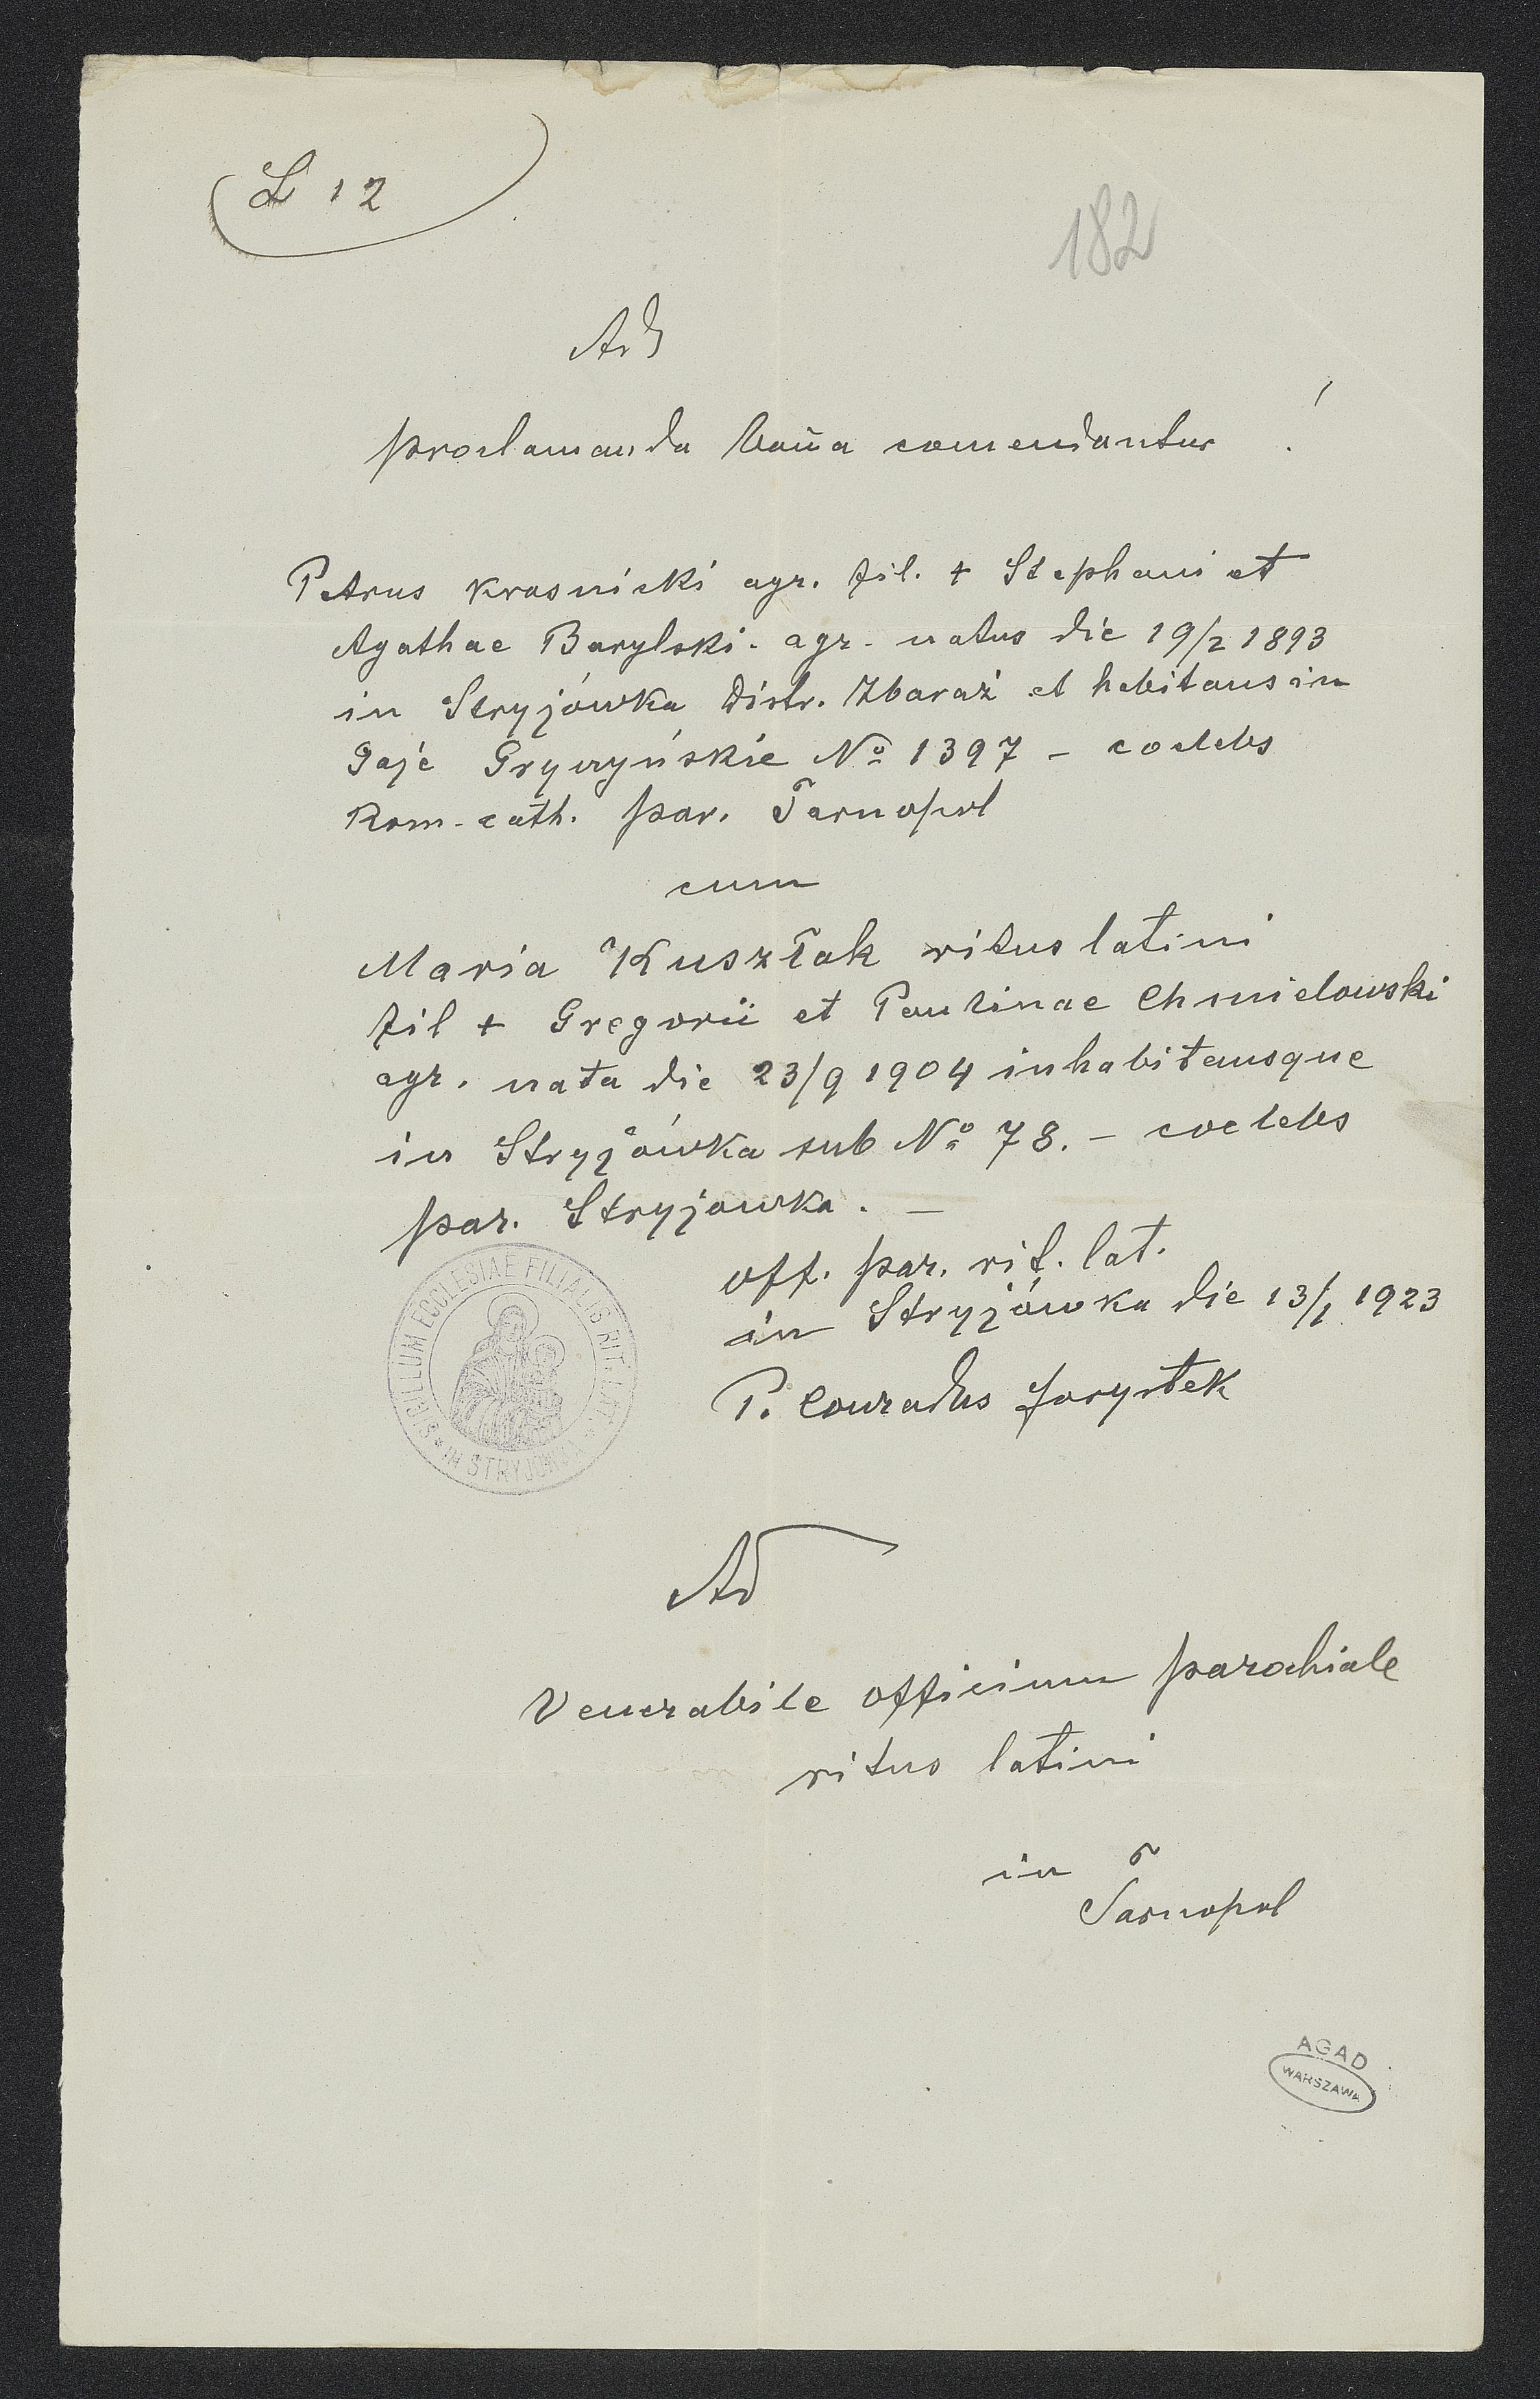 L 12
182
Ad
proclamanda banna comendantur !
Petrus Krasnicki agr. fil. + Stephani et
Agathae Barylski. agr. natus die 19/2 1893
in Stryjówka distr. Zbaraż et habitans in
Gaje Gryczyńskie № 1397 – coelebs
Rom-cath. par. Tarnopol
cum
Maria Kuszłak ritus latini
fil + Gregorii et Paulinae Chmielowski
agr. nata die 23/9 1904 inhabitansque
in Stryjówka sub № 78. – coelebs
par. Stryjowka. –
off. par. rit. lat.
in Stryjówka die 13/1 1923
P. Conradus
SIGILLUM ECCLESIAE FILIALIS RIT. LAT. * IN STRYJÓWKA *
Ad
Venerabile officium parochiale
ritus latini
in
Tarnopol
AGAD
WARSZAWA